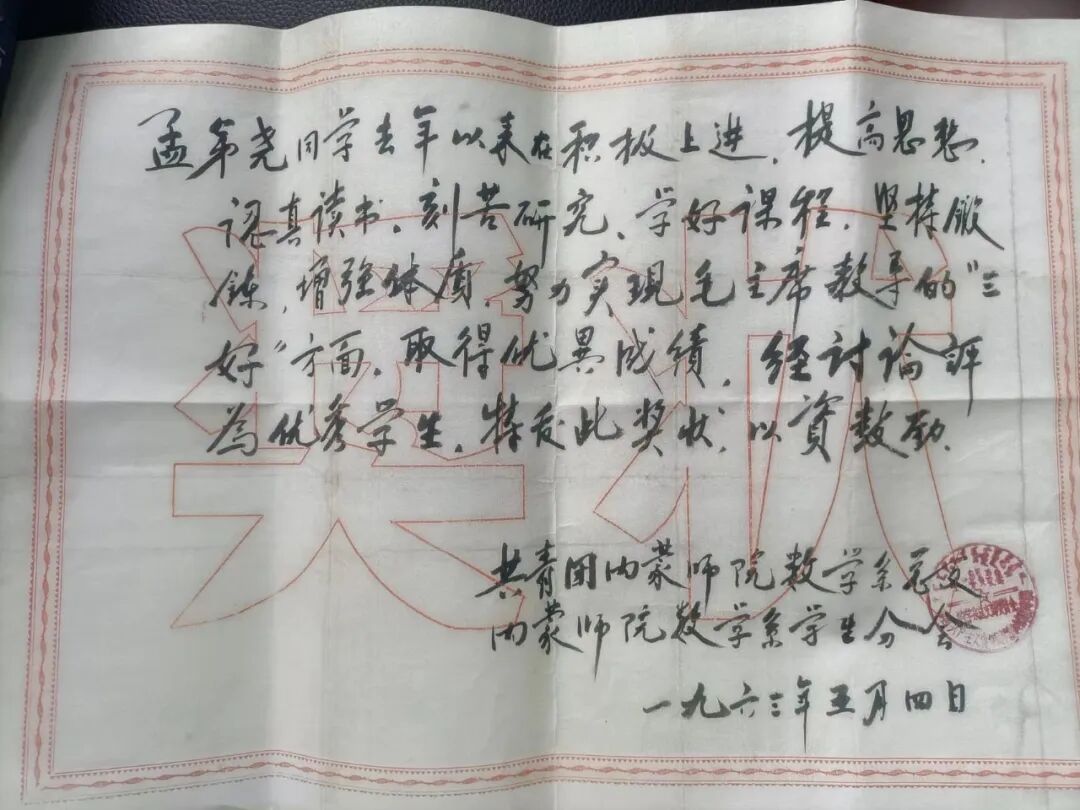 孟第尧同学去年以来在积极上进，提高思想，
认真读书，刻苦研究，学好课程，坚持锻
鍊，增强体质，努力实现毛主席教导的“三
好”方面，取得优異成績，经讨论評
为优秀学生，特发此奖状，以資鼓励。
奖状
共青团内蒙师院数学系总支
内蒙师院数学系学生分会
一九六三年五月四日